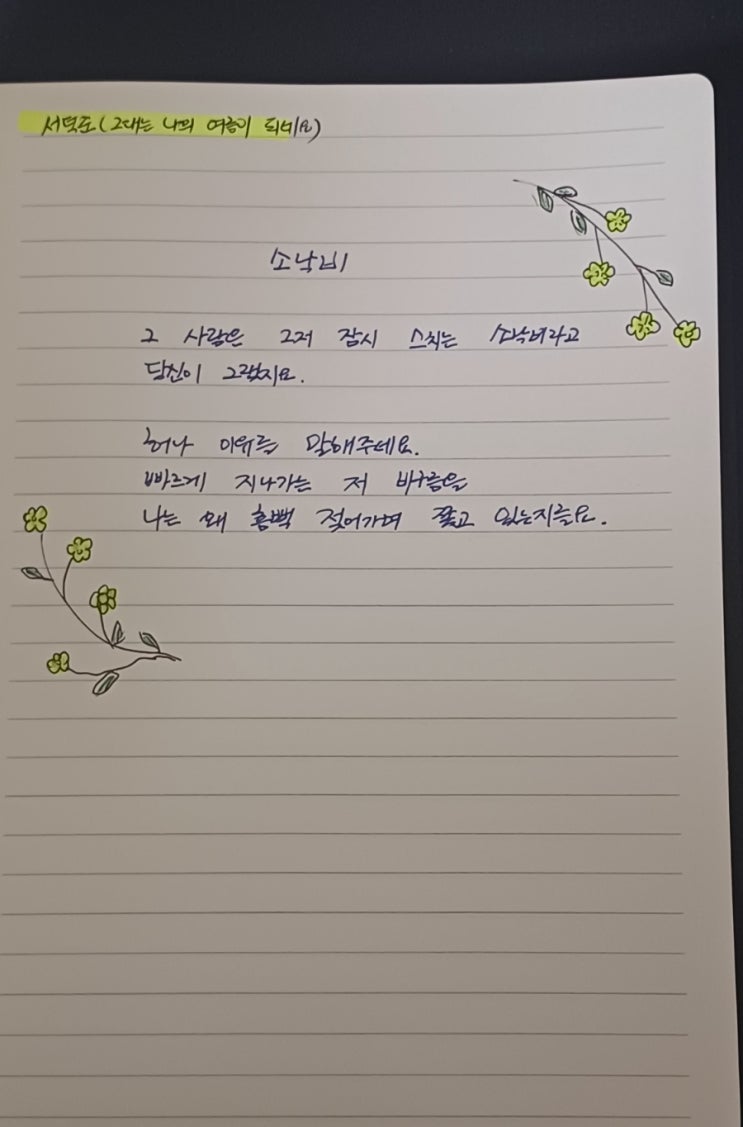 서덕준(그대는 나의 여름이 되세요)
소낙비
그 사람은 그저 잠시 스치는 소낙비라고
당신이 그랬지요.
허나 이유를 말해주세요.
빠르게 지나가는 저 비구름을
나는 왜 흠뻑 젖어가며 쫓고 있는지를요.